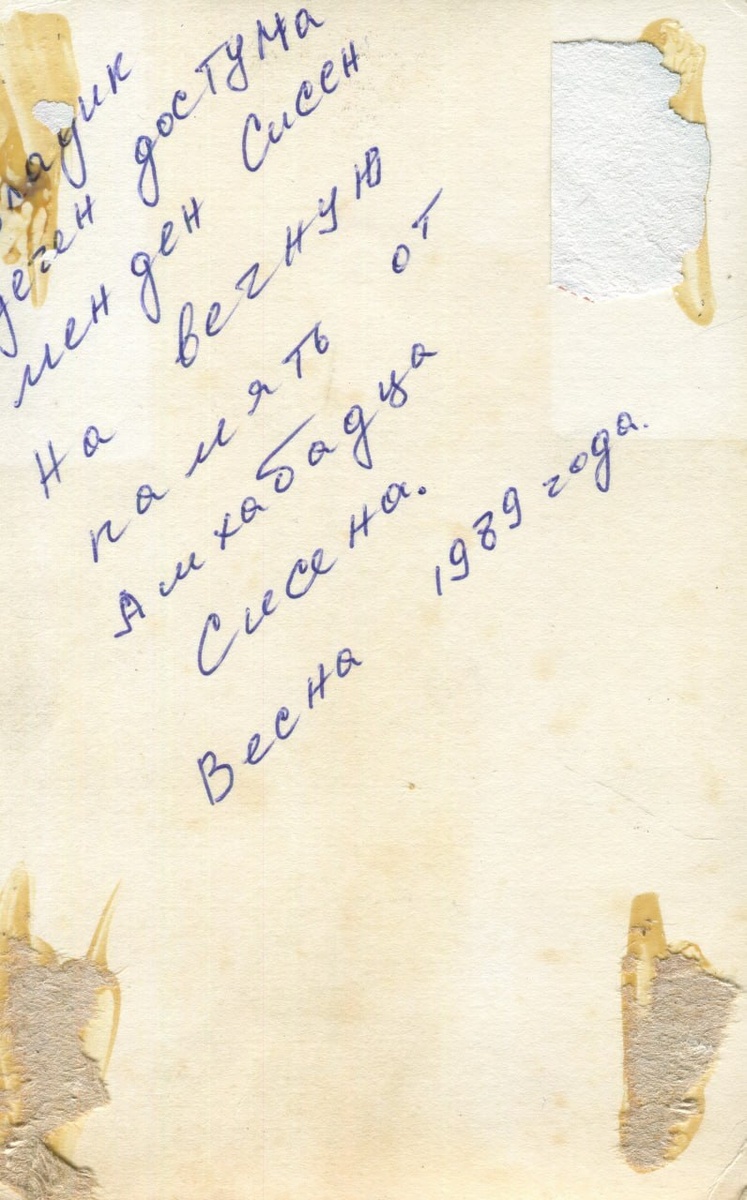 Владик
деген достума
менден Сисен
На вечную
память от
Амхабадца
Сисена.
Весна 1989 года.